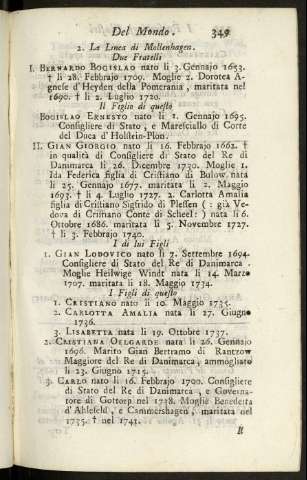 Del Mondo. 349
2. La Linea di Mollenhagen.
Due Fratelli
I. BERNARDO BOGISLAO nato li 3. Gennajo 1653.
† li 28. Febbrajo 1709. Moglie 2. Dorotea A-
gnese d'Heyden della Pomerania, maritata nel
1690. † li 2. Luglio 1720.
Il Figlio di questo
BOGISLAO ERNESTO nato li 1. Gennajo 1695.
Consigliere di Stato, e Maresciallo di Corte
del Duca d'Holstein-Plön.
II. GIAN GIORGIO nato li 16. Febbrajo 1662. †
in qualità di Consigliere di Stato del Re di
Danimarca li 26. Decembre 1730. Moglie 1.
Ida Federica figlia di Cristiano di Bulow, nata
li 25. Gennajo 1677. maritata li 2. Maggio
1693. † li 4. Luglio 1727. 2. Carlotta Amalia
figlia di Cristiano Sigfrido di Plessen (: già Ve-
dova di Cristiano Conte di Scheel: ) nata li 6.
Ottobre 1686. maritata li 5. Novembre 1727.
† li 3. Febbrajo 1740.
I di lui Figli
1. GIAN LODOVICO nato li 7. Settembre 1694.
Consigliere di Stato del Re di Danimarca.
Moglie Heilwige Windt nata li 14. Marzo
1707. maritata li 18. Maggio 1734.
I Figli di questo
1. CRISTIANO nato li 10. Maggio 1735.
2. CARLOTTA AMALIA nata li 27. Giugno
1736.
3. LISABETTA nata li 19. Ottobre 1737.
2. CRISTIANA OELGARDE nata li 26. Gennajo
1696. Marito Gian Bertramo di Rantzow
Maggiore del Re di Danimarca, ammogliato
li 23. Giugno 1715.
3. CARLO nato li 16. Febbrajo 1700. Consigliere
di Stato del Re di Danimarca, e Governa-
tore di Gottorp nel 1738. Moglie Benedetta
d'Ahlefeld, e Cammershagen, maritata nel
1735. † nel 1741.
II